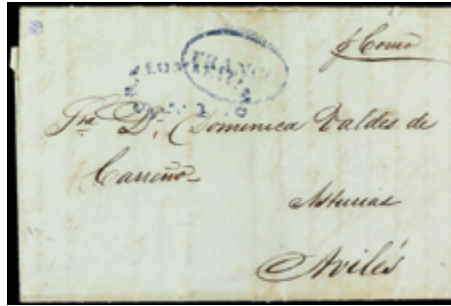 FRANCO
p Correo
Sra. Da. Dominica Valdes de
Carreño
Asturias
Avilés